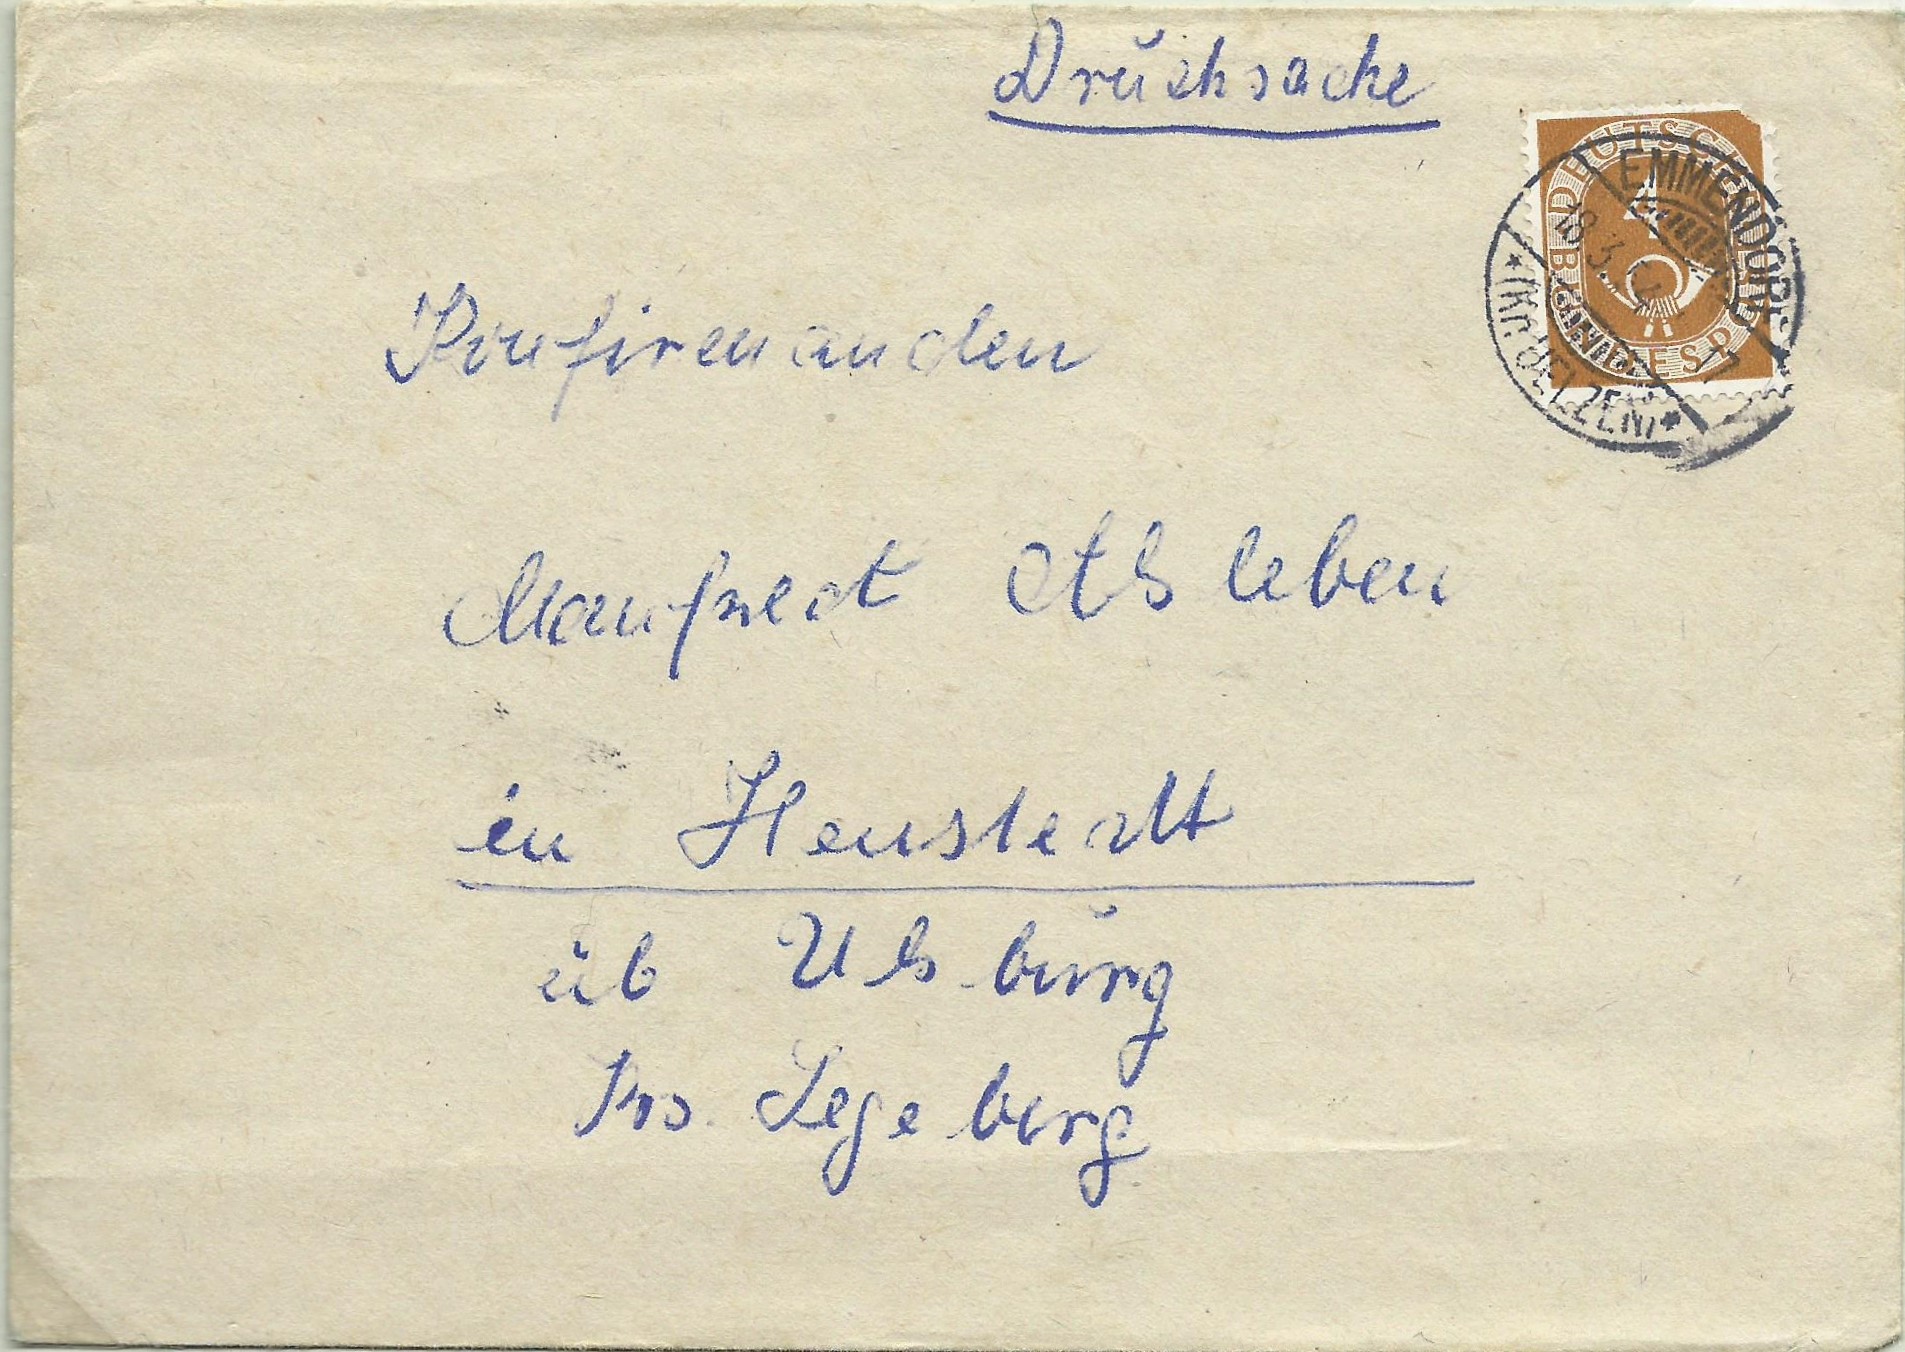 Drucksache
DEUTSCHE BUNDESPOST
4
EMMENDORF
18.3.
17
(KR. UELZEN)
Konfirmanden
Manfred Alsleben
in Henstedt
üb Ulsburg
Krs. Segeberg